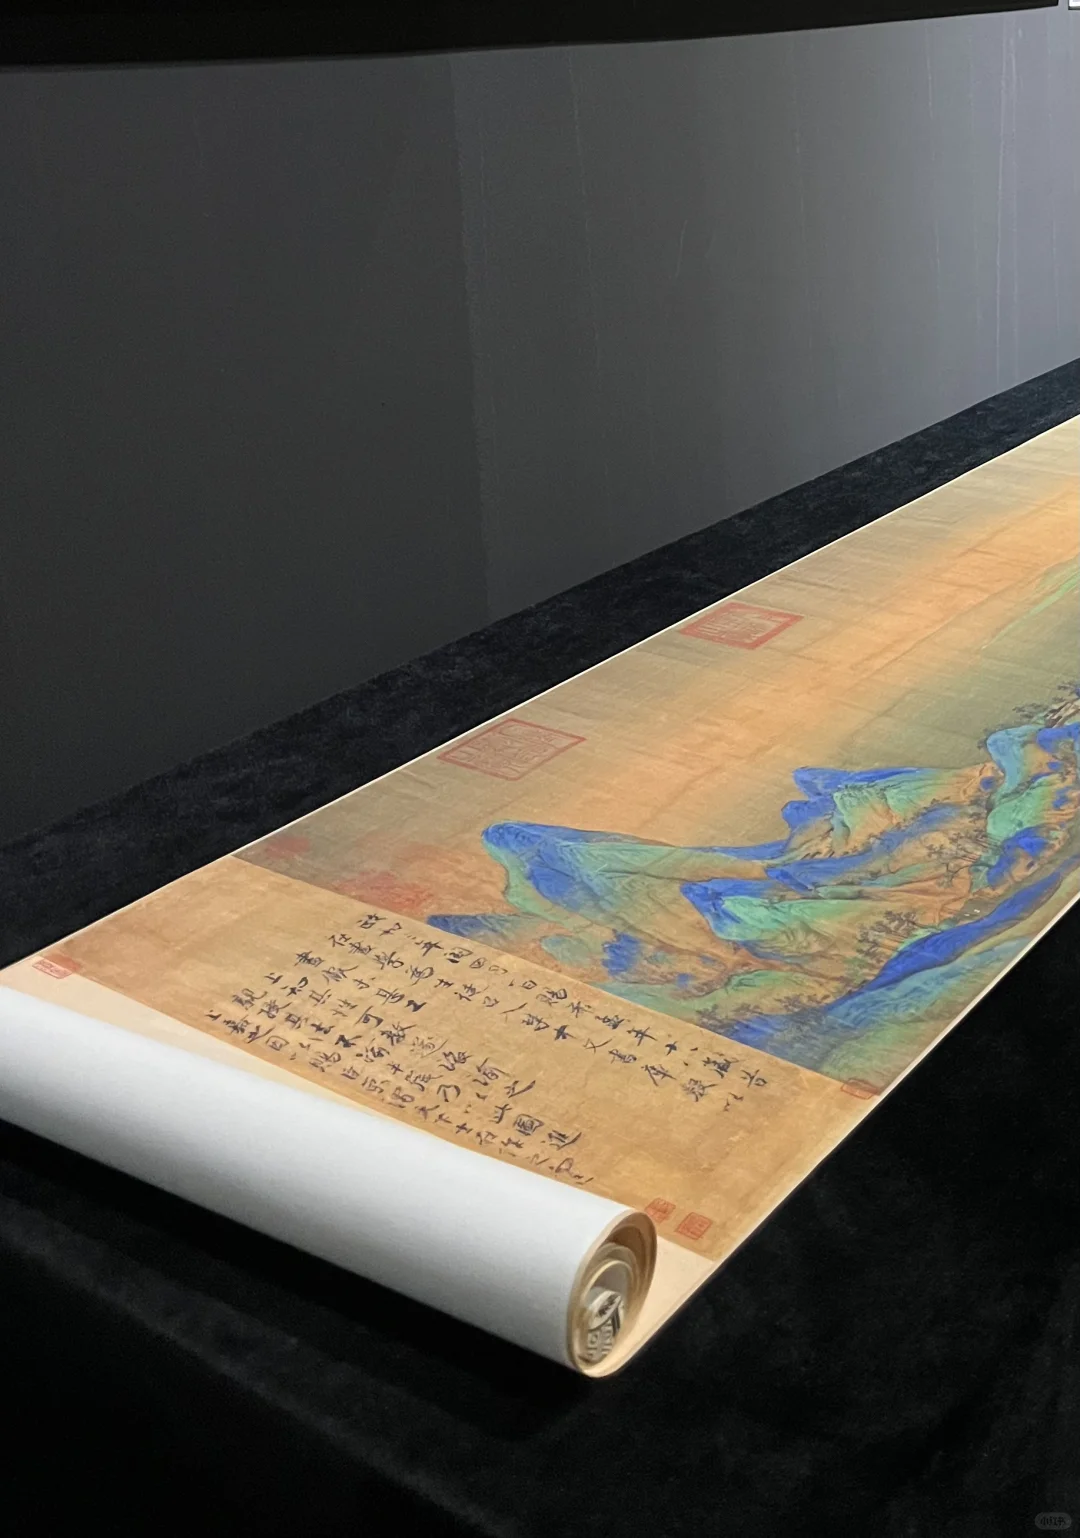 政和三年閏四月一日賜希孟年十八歲昔
在畫學為生徒召入禁中文書庫數以
畫獻未甚工
上知其性可教遂誨諭之
親授其法不踰半歲乃以此圖進
上嘉之因以賜臣京謂天下士在作之而已
小红书